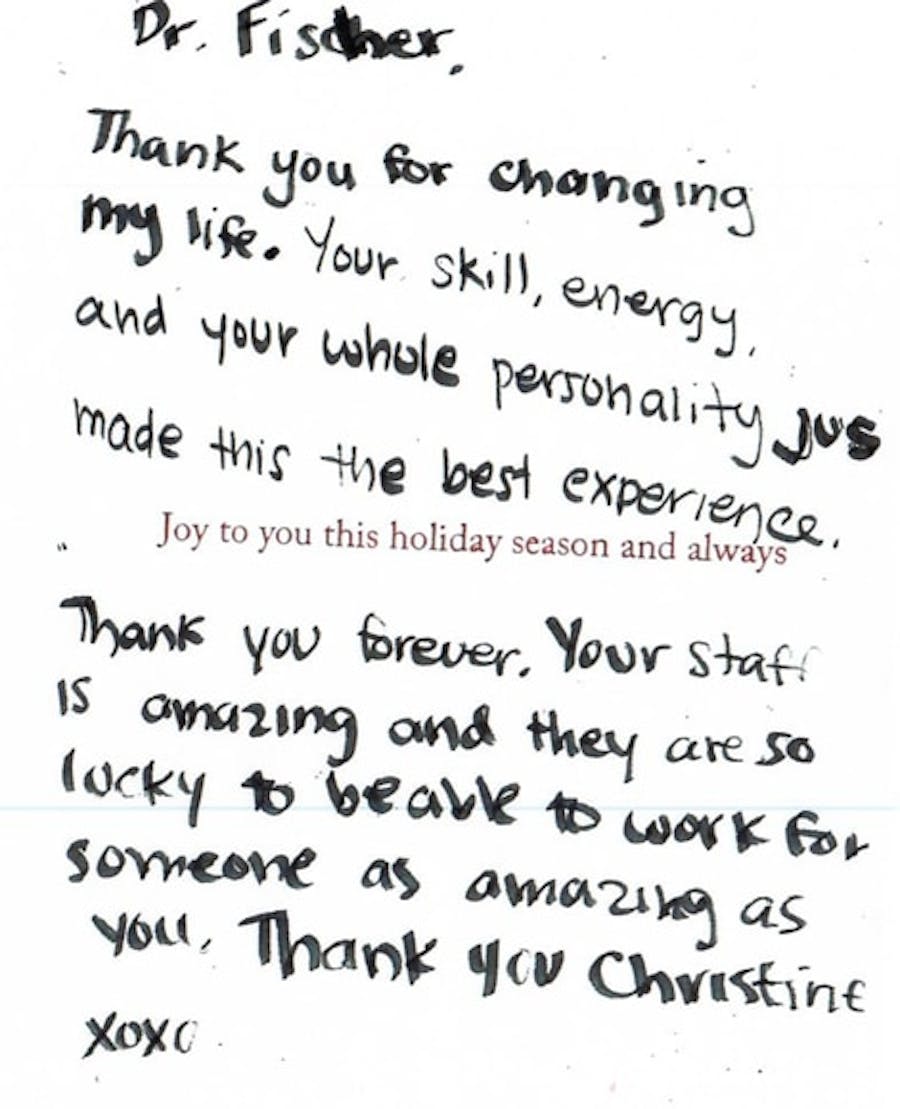 Dr. Fischer,
Thank you for changing
my life. Your skill, energy,
and your whole personality jus
made this the best experience.
Joy to you this holiday season and always
Thank you forever. Your staff
is amazing and they are so
lucky to be able to work for
someone as amazing as
you. Thank you Christine
xoxo